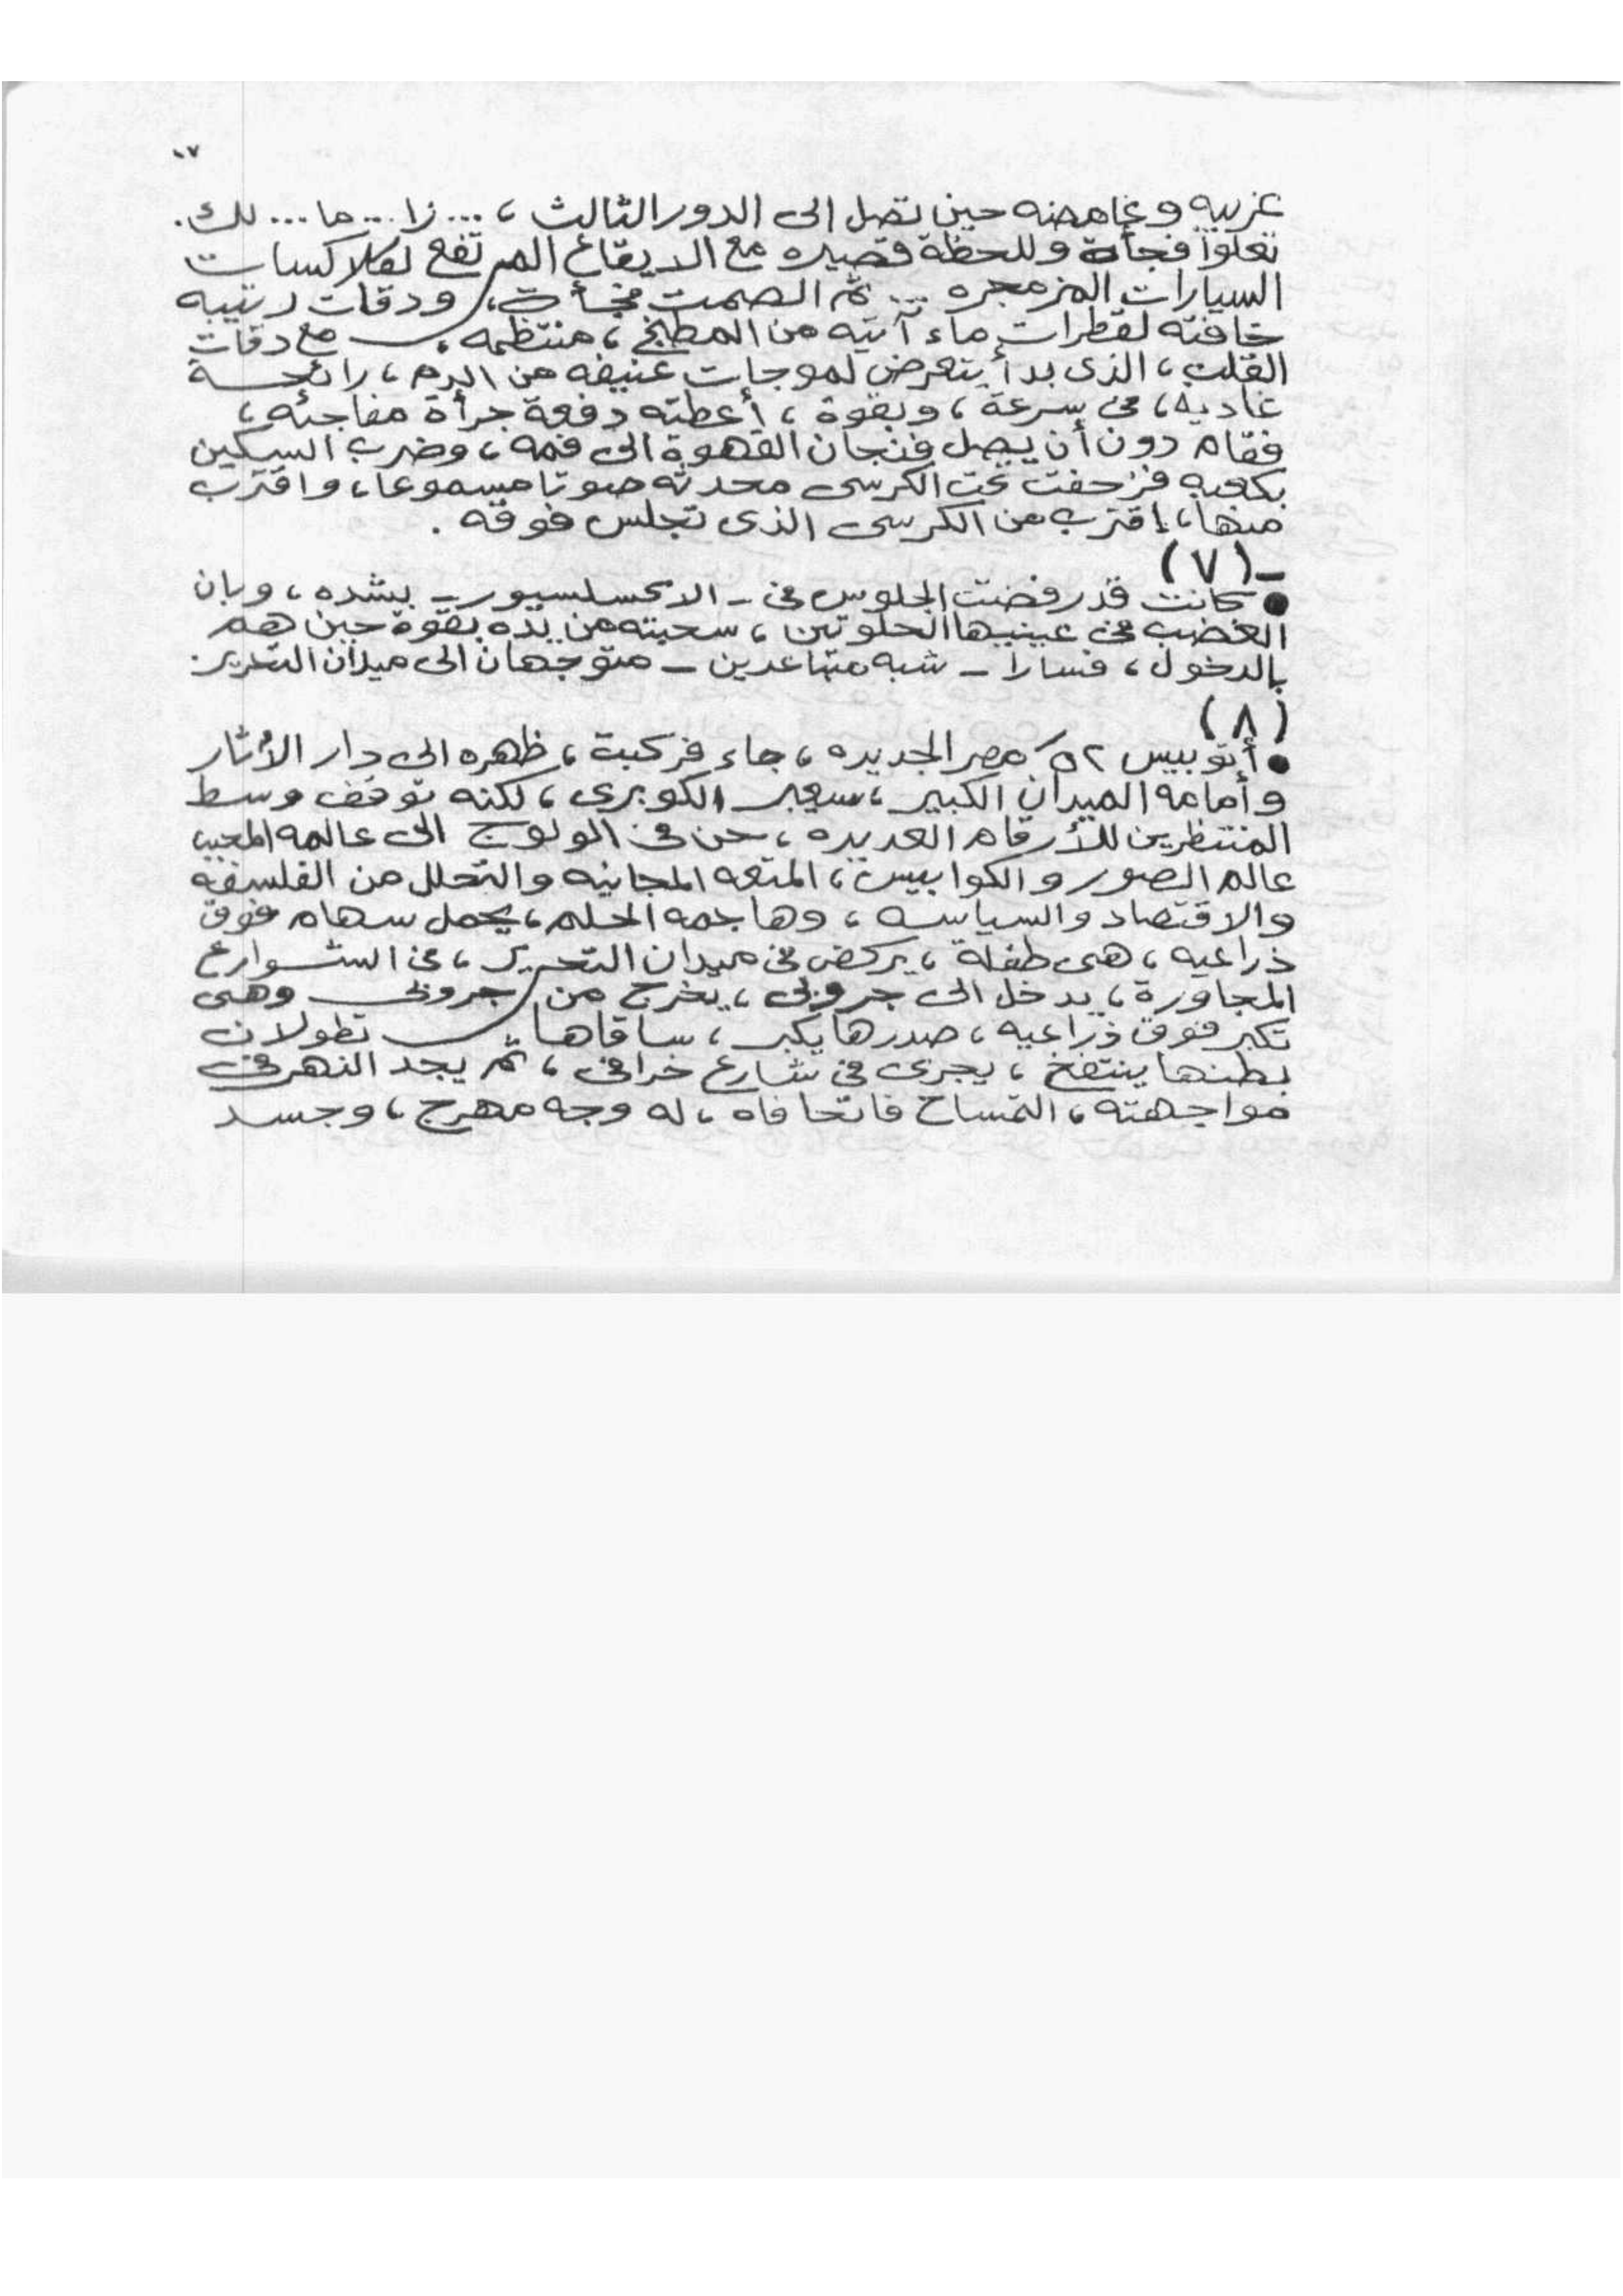 ١٧
غريبه وغامضه حين تصل الى الدور الثالث ، ... زا ... ما ... لك .
تعلوا فجأة وللحظة قصيره مع الايقاع المرتفع لكلاكسات
السيارات المزمجره ... ثم الصمت فجأة ، ودقات رتيبه
خافته لقطرات ماء آتيه من المطبخ ، منتظمه ، مع دقات
القلب ، الذى بدأ يتعرض لموجات عنيفه من الدم ، رائحة
غاديه ، فى سرعة ، وبقوة ، أعطته دفعة جرأة مفاجئه ،
فقام دون أن يصل فنجان القهوة الى فمه ، وضرب السكين
بكعبه فزحفت تحت الكرسى محدثه صوتا مسموعا ، واقترب
منها ، اقترب من الكرسى الذى تجلس فوقه .
ـ ( ٧ )
● كانت قد رفضت الجلوس فى ـ الاكسلسيور ـ بشده ، وبان
الغضب فى عينيها الحلوتين ، سحبته من يده بقوة حين هم
بالدخول ، فسارا ـ شبه متباعدين ـ متوجهان الى ميدان التحرير .
( ٨ )
● أتوبيس ٥٢ مصر الجديده ، جاء فركبت ، ظهره الى دار الأثار
وأمامه الميدان الكبير ، سيعبر الكوبرى ، لكنه توقف وسط
المنتظرين للأرقام العديده ، حن فى الولوج الى عالمه المحبب
عالم الصور والكوابيس ، المتعه المجانيه والتحلل من الفلسفه
والاقتصاد والسياسه ، وهاجمه الحلم ، يحمل سهام فوق
ذراعيه ، هى طفلة ، يركض فى ميدان التحرير ، فى الشوارع
المجاورة ، يدخل الى جروبى ، يخرج من جروبى وهى
تكبر فوق ذراعيه ، صدرها يكبر ، ساقاها تطولان
بطنها ينتفخ ، يجرى فى شارع خرافى ، ثم يجد النهر فى
مواجهته ، التمساح فاتحا فاه ، له وجه مهرج ، وجسد